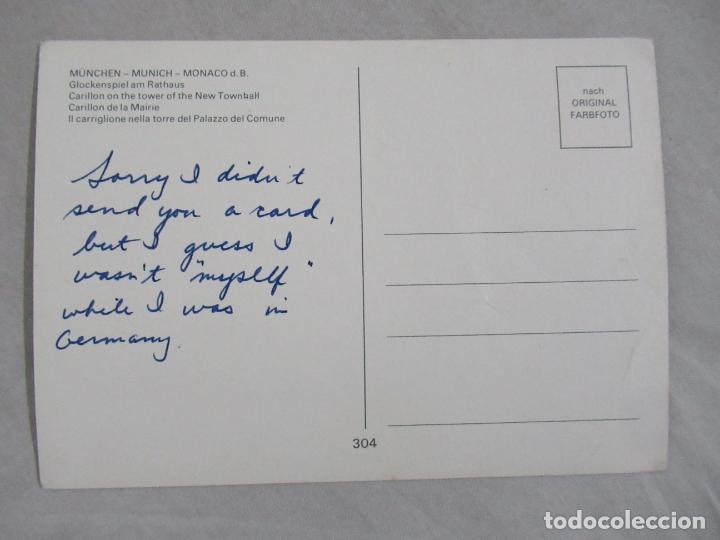 MÜNCHEN – MUNICH – MONACO d. B.
Glockenspiel am Rathaus
Carillon on the tower of the New Townhall
Carillon de la Mairie
Il carriglione nella torre del Palazzo del Comune
nach
ORIGINAL
FARBFOTO
Sorry I didn't
send you a card,
but I guess I
wasn't "myself"
while I was in
Germany.
304
todocoleccion.net